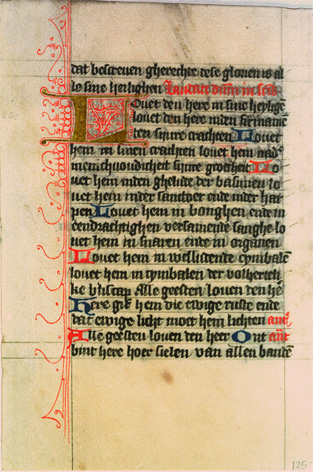 dat bescreuen gherechte dese glorien is al
lo sine heilighen Laudate dominū in sctīs
Louet den here in sine heylige
louet den here inden firmamē
ten sijnre crachten Louet
hem in sinen crachten louet hem nad'
menichuoudicheit sijnre grootheit Lo
uet hem inden ghelude der basunen lo
uet hem inder santoer ende inder har
pen Louet hem in bonghen ende in
eendrachtighen versamende sanghe lo
uet hem in snaren ende in organen
Louet hem in welludende cymbalē
louet hem in cymbalen der volherteli
ke bliscap Alle geesten louen den hē
Here gif hem die ewige ruste ende
dat ewige licht moet hem lichten
Alle geesten louen den heer Ont
bint here hoer sielen van allen bandē
125